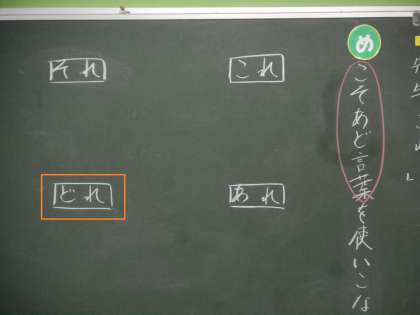 め
こそあど言葉を使いこな
これ
それ
あれ
どれ